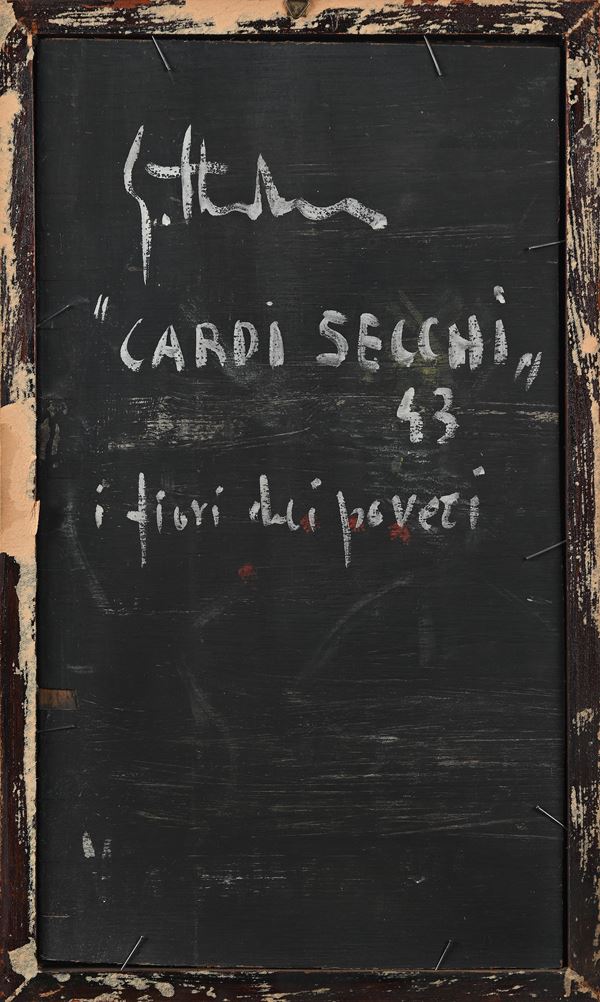 "CARDI SECCHI"
43
i fiori dei poveri